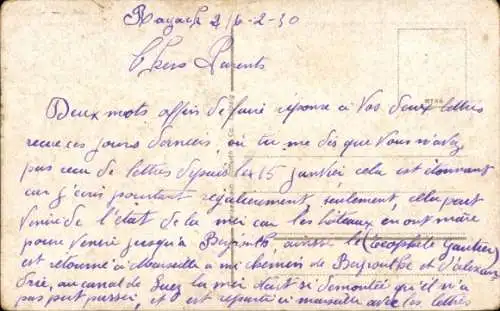 Rayack 26-2-30
Chers Parents
Deux mots affin de faire réponse à Vos deux lettres
recue ces jours derniers, où tu me dis que Vous n'avez
pas recu de lettres depuis les 15 janvier cela est étonnant
car j'écris pourtant regulierement, seulement, cela peut
venir de l'état de la mer car les bateaux en ont marre
pour venir jusqu'à Beyrouth, aussi le (Téophile Gautier)
est retourné à Marseille a mi chemin de Beyrouth et d'Alexan
drie, au canal de Suez la mer était si demontée qu'il n'a
pas put passer, et est reparti a marseille avec les lettres